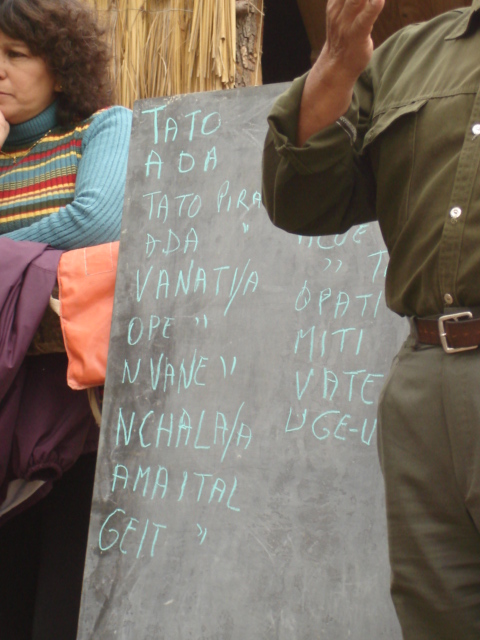 TATO
ADA
TATO PIRA
ADA "
VANATI/A
OPE "
NVANE "
NCHALA/A
AMAITAL
GEIT "
" T
OPATI
MITI
VATE